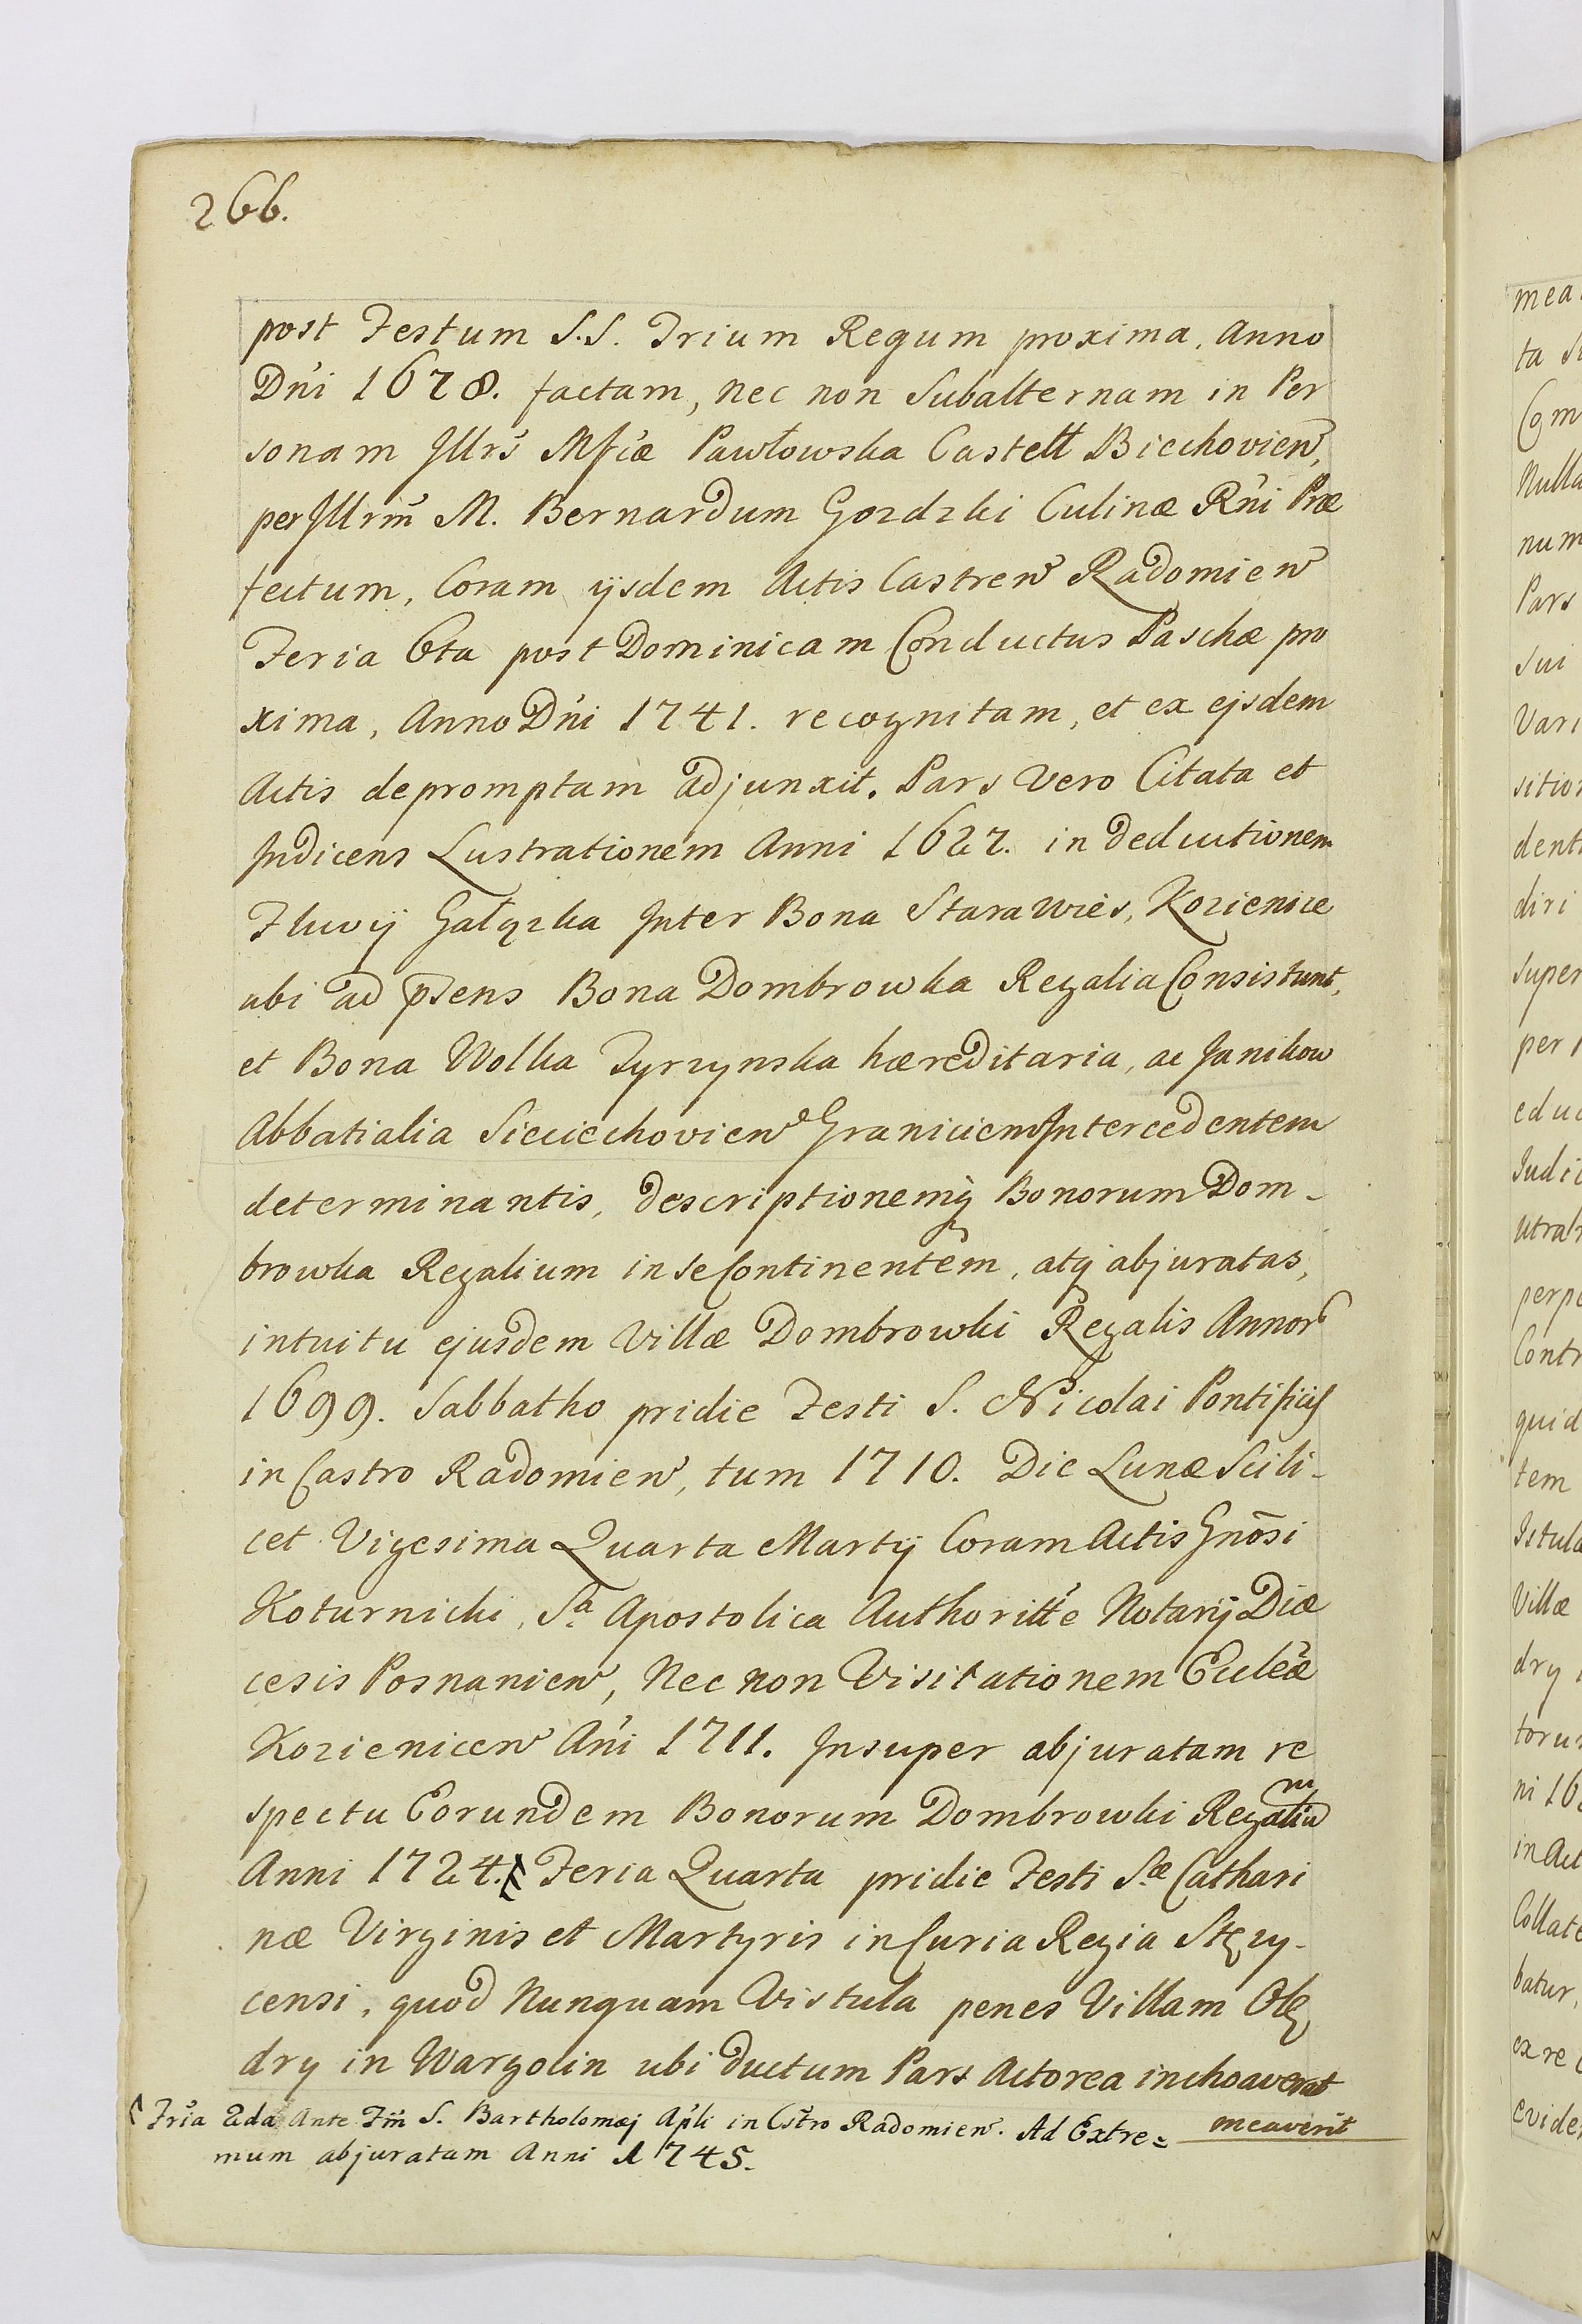 266.
post Festum S.S. Trium Regum proxima, Anno
Dńi 1678. factam, nec non Subalternam in Per
sonam Jllrś Mfcæ Pawłowska Castell Biechovien,
per Jllrm̃ M. Bernardum Gozdzki Culinæ Rńi Præ
fectum, Coram ijsdem Actis Castren Radomien
Feria 6ta post Dominicam Conductus Paschæ pro
xima, Anno Dńi 1741. recognitam, et ex ejsdem
Actis depromptam adjunxit. Pars vero Citata et
Jndicens Lustrationem Anni 1627. in deductionem
Fluvij Gałązka Jnter Bona Stara wieś, Kozienice
ubi ad p̃sens Bona Dombrowka Regalia Consistunt,
et Bona Wolka Tyrzynska hæreditaria, ac Janikow
Abbatialia Sieciechovien Graniciem Jntercedentem
determinantis, descriptionemq́ Bonorum Dom-
browka Regalium in se Continentem, atq́ abjuratas,
intuitu ejusdem Villæ Dombrowki Regalis Annor
1699. Sabbatho pridie Festi S. Nicolai Pontificis
in Castro Radomien, tum 1710. Die Lunæ Scili-
cet Vigesima Quarta Martij Coram Actis Gnõsi
Koturnicki, Sa Apostolica Authoritte Notarij Diæ
cesis Posnanien, Nec non Visitationem Eccleæ
Kozienicen Ańi 1711. Jnsuper abjuratam re
spectu Eorundem Bonorum Dombrowki Regalium
Anni 1724. Feria Quarta pridie Festi Sæ Cathari
næ Virginis et Martyris in Curia Regia Stęzy-
censi, quod Nunquam Vistula penes Villam Olę
dry in Wargocin ubi ductum Pars Actorea inchoaverat
meaverit
Fria 2da Ante Fm̃ S. Bartholomæj Apli in Cstro Radomien. Ad Extre=
mum abjuratam Anni 1745.
mea
ta
Com
Nulla
num
Pars
sui
Vari
sition
denti
diri
super
per
edu
Judi
utra
perp
Contr
quid
tem
Istula
Villæ
dry
toru
ni 16
in Act
Collate
batur,
ex re
evide